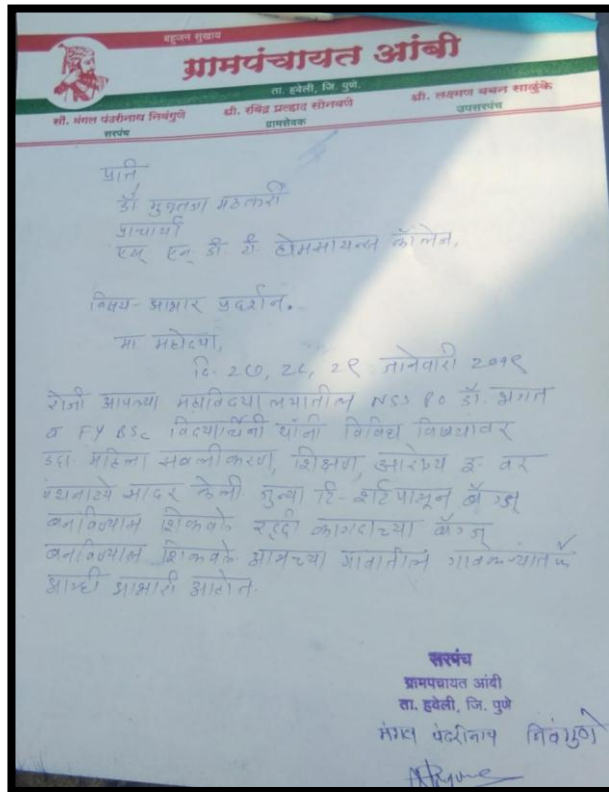 बहुजन सुखाय
ग्रामपंचायत आंबी
ता. हवेली, जि. पुणे.
सौ. मंगल पंढरीनाथ निवंगुणे
सरपंच
श्री. रविंद्र प्रल्हाद सोनवणे
ग्रामसेवक
श्री. लक्ष्मण बबन साळुंके
उपसरपंच
प्रति,
डॉ मुक्तजा मठकरी
प्राचार्या
एस् एन. डी. टी. होमसायन्स कॉलेज.
विषय - आभार प्रदर्शन.
मा महोदया,
दि. २७, २८, २९ जानेवारी २०१९
रोजी आपल्या महाविदयालयातील NSS PO डॉ. भगत
व FY BSc विदयार्थिनी यांनी विविध विषयावर
उदा. महिला सबलीकरण, शिक्षण, आरोग्य इ. वर
पथनाटये सादर केली जुन्या टि-शर्टपासून बॅग्ज्
बनविण्यास शिकवले रद्दी कागदाच्या बॅग्ज्
बनविण्यास शिकवले आमच्या गावातील गावकऱ्यांतर्फे
आम्ही आभारी आहोत.
सरपंच
ग्रामपंचायत आंबी
ता. हवेली, जि. पुणे
मंगल पंढरीनाथ निवंगुणे